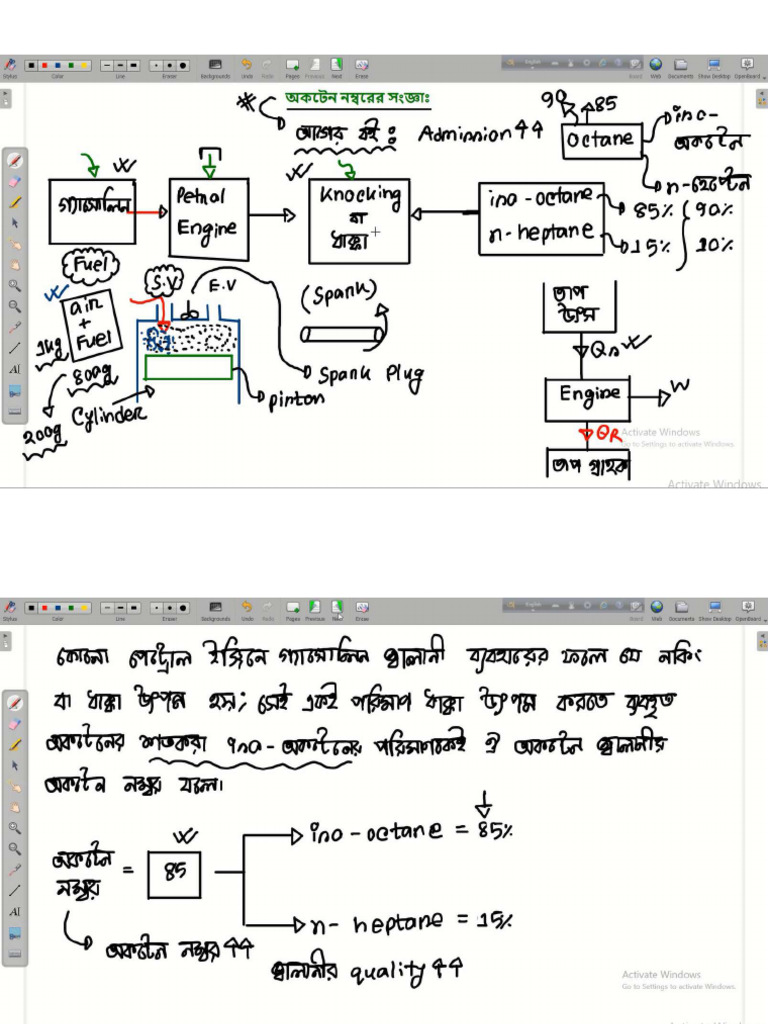 Stylus
Color
Line
Eraser
Backgrounds
Undo
Redo
Pages
Previous
Next
Erase
Board
Web
Documents
Show Desktop
OpenBoard
অকটেন নম্বরের সংজ্ঞাঃ
আগের বই: Admission ↑↑
90
85
Octane
iso-অকটেন
n-হেপ্টেন
গ্যাসোলিন
Petrol Engine
Knocking বা ধাক্কা
iso-octane
n-heptane
85% 90%
15% 10%
Fuel
air + Fuel
1kg
800g
200g
S.V
E.V
(Spark)
Spark Plug
piston
Cylinder
তাপ উৎস
Engine
W
QR
তাপ গ্রাহক
Activate Windows
Go to Settings to activate Windows.
Activate Windows
Stylus
Color
Line
Eraser
Backgrounds
Undo
Redo
Pages
Previous
Next
Erase
Board
Web
Documents
Show Desktop
OpenBoard
কোনো পেট্রোল ইঞ্জিনে গ্যাসোলিন জ্বালানী ব্যবহারের ফলে যে নকিং
বা ধাক্কা উৎপন্ন হয়; সেই একই পরিমাণ ধাক্কা উৎপন্ন করতে ব্যবহৃত
অকটেনের শতকরা iso-অকটেনের পরিমাণকেই ঐ অকটেন জ্বালানীর
অকটেন নম্বর বলে।
iso-octane = 85%
অকটেন নম্বর = 85
n-heptane = 15%
অকটেন নম্বর ↑↑
জ্বালানীর quality ↑↑
Activate Windows
Go to Settings to activate Windows.